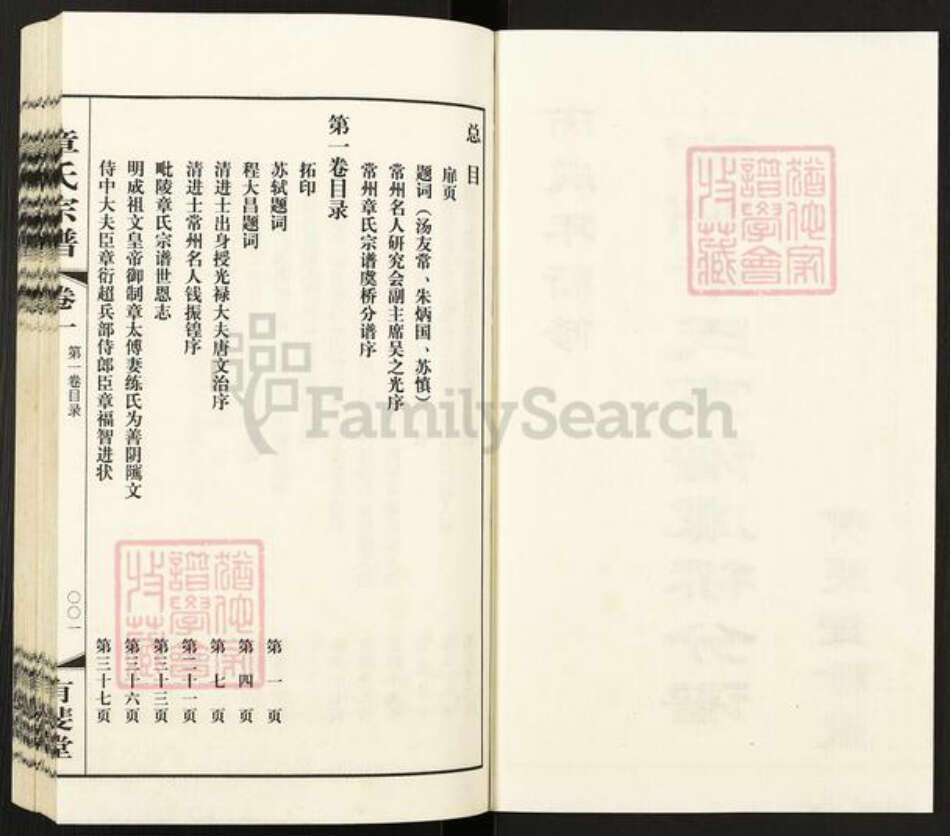 总目
扉页
题词（汤友常、朱炳国、苏慎）
常州名人研究会副主席吴之光序
常州章氏宗谱虞桥分谱序
第一卷目录
拓印
苏轼题词 第一页
程大昌题词 第四页
清进士出身授光禄大夫唐文治序 第七页
清进士常州名人钱振锽序 第二十一页
毗陵章氏宗谱世恩志 第三十三页
明成祖文皇帝御制章太傅妻练氏为善阴骘文 第三十六页
侍中大夫臣章衍超兵部侍郎臣章福智进状 第三十七页
章氏宗谱
卷一
第一卷目录
〇〇一
有斐堂
FamilySearch